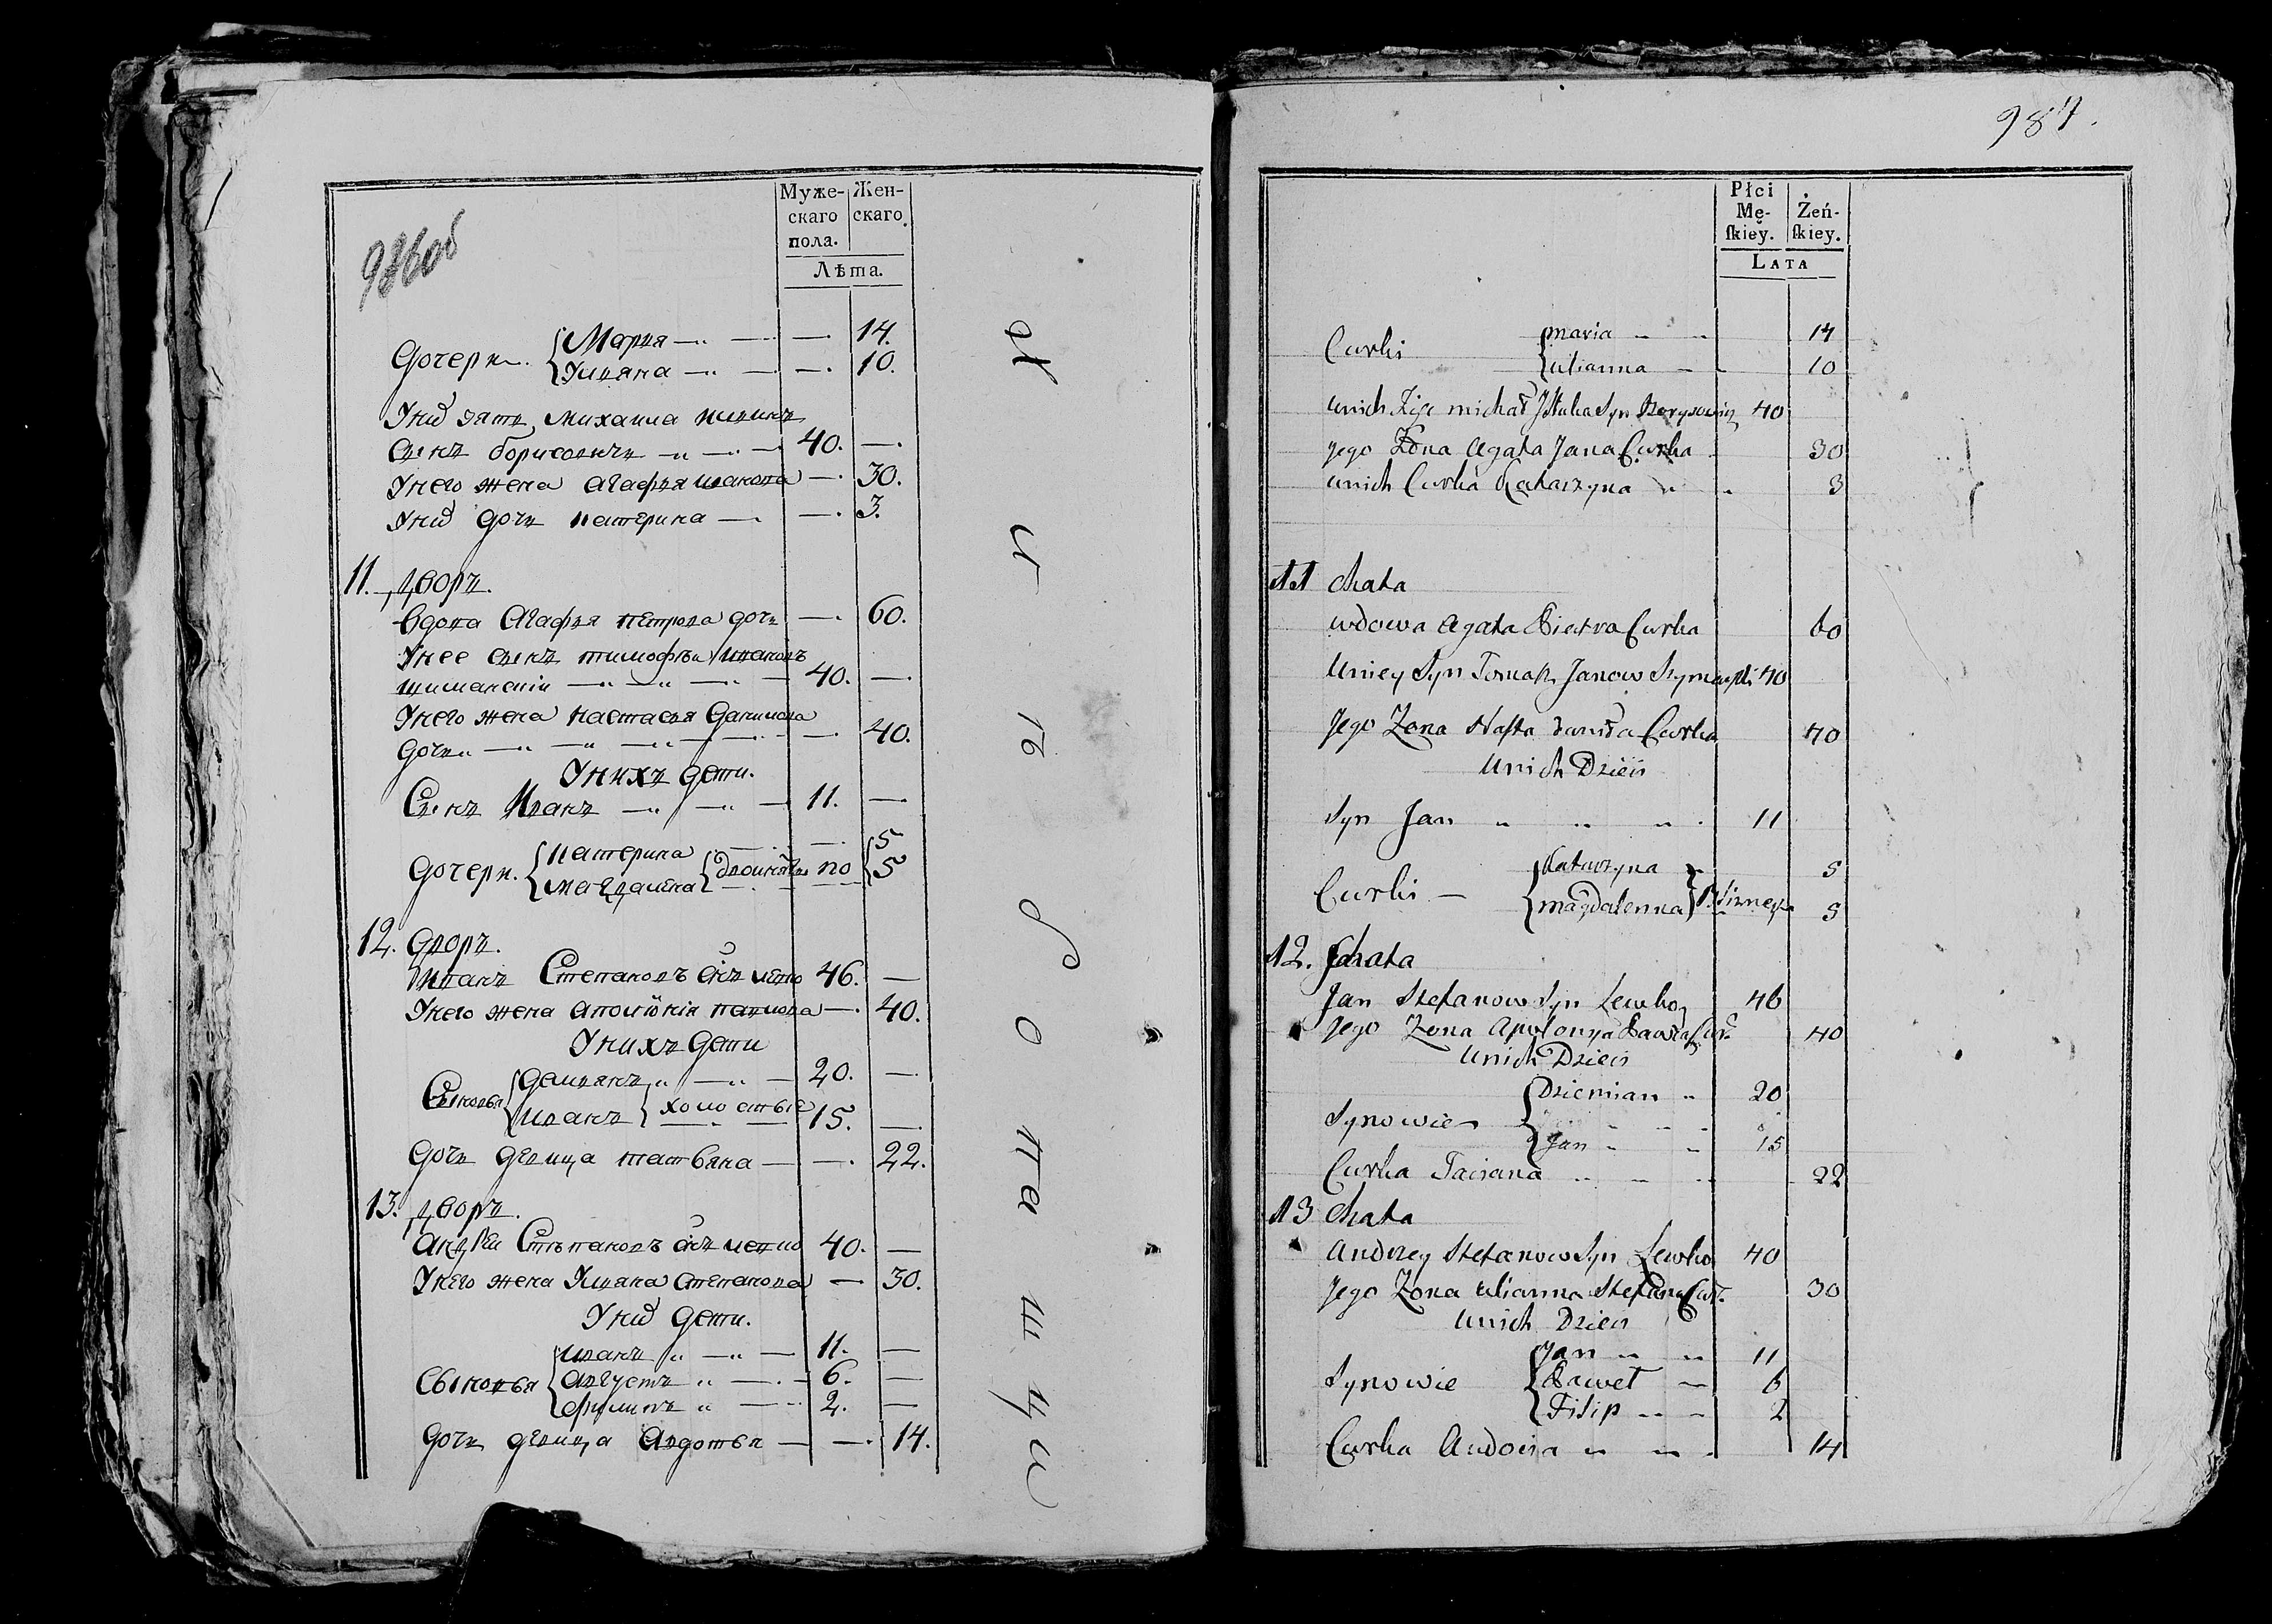 986об
Муже-
скаго
пола.
Жен-
скаго.
Лѣта.
Дочери {Марья — — — 14.
{Ульяна — — — 10.
У них зять Михаила
сынъ борисовичъ — — 40. —
У него жена Агафья иванова — 30.
У них дочь катерина — — 3.
11. дворъ.
вдова Агафья петрова дочь — 60.
У нее сынъ тимофѣи ивановъ
шиманскіи — — — 40. —
У него жена настасья данилова
дочь — — — — — 40.
У нихъ дети.
Сынъ Иванъ — — 11. —
Дочери. {катерина — — {5
{магдалена {двойняшки по {5
12. дворъ.
Иванъ Степановъ снъ левко 46. —
У него жена аполонія павлова — 40.
У нихъ дети
Сыновья {демьянъ — — 20. —
{иванъ {холостые 15. —
дочь девица татьяна — — 22.
13. дворъ.
Андреи Степановъ снъ левко 40. —
У него жена Ульяна степанова — 30.
У них дети.
Сыновья {иванъ — — 11. —
{августъ — — 6. —
{филипъ — — 2. —
дочь девица Авдотья — — 14.
987.
Płci
Mę-
ſkiey.
Żeń-
ſkiey.
LATA
Curki {maria 14
{ulianna 10
unich Zięc michał Syn Borysowicz 40
jego Zona agata Jana Curka 30
unich Curka Katarzyna 3
11 Chata
wdowa agata Pietra Curka 60
Uniey Syn Tomasz Janow Szymanski 40
Jego Zona Nasta daniła Curka 40
Unich Dzieci
Syn Jan 11
Curki — {Katarzyna 5
{magdalenna} Blizneta 5
12. Chata
Jan Stefanow Syn Lewko 46
Jego Zona Apolonya Pawła Cur. 40
Unich Dzieci
Synowie {Dziemian 20
{Jan 15
Curka Taciana 22
13 Chata
Andrzey Stefanow Syn Lewko 40
Jego Zona ulianna Stefana Cur. 30
Unich Dzieci
Synowie {Jan 11
{Paweł — 6
{Filip 2
Curka Audocia 14